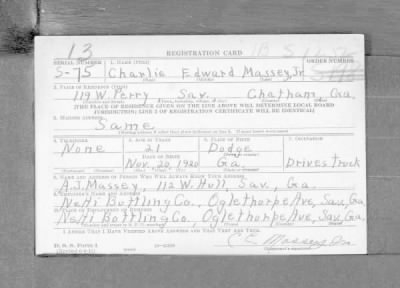 13
REGISTRATION CARD
SERIAL NUMBER 1. NAME (Print) ORDER NUMBER
S-75 Charlie Edward Massey, Jr.
2. PLACE OF RESIDENCE (Print)
119 W. Perry Sav. Chatham, Ga.
[THE PLACE OF RESIDENCE GIVEN ON THE LINE ABOVE WILL DETERMINE LOCAL BOARD
JURISDICTION; LINE 2 OF REGISTRATION CERTIFICATE WILL BE IDENTICAL]
3. MAILING ADDRESS
Same
4. TELEPHONE 5. AGE IN YEARS 6. PLACE OF BIRTH 7. OCCUPATION
None 21 Dodge
DATE OF BIRTH
Nov. 20, 1920 Ga. Drives truck
8. NAME AND ADDRESS OF PERSON WHO WILL ALWAYS KNOW YOUR ADDRESS
A.J. Massey, 112 W. Hull, Sav., Ga.
9. EMPLOYER'S NAME AND ADDRESS
NeHi Bottling Co., Oglethorpe Ave, Sav, Ga.
10. PLACE OF EMPLOYMENT OR BUSINESS
NeHi Bottling Co., Oglethorpe Ave, Sav, Ga.
I AFFIRM THAT I HAVE VERIFIED ABOVE ANSWERS AND THAT THEY ARE TRUE.
C. E. Massey Jr.
D. S. S. FORM 1